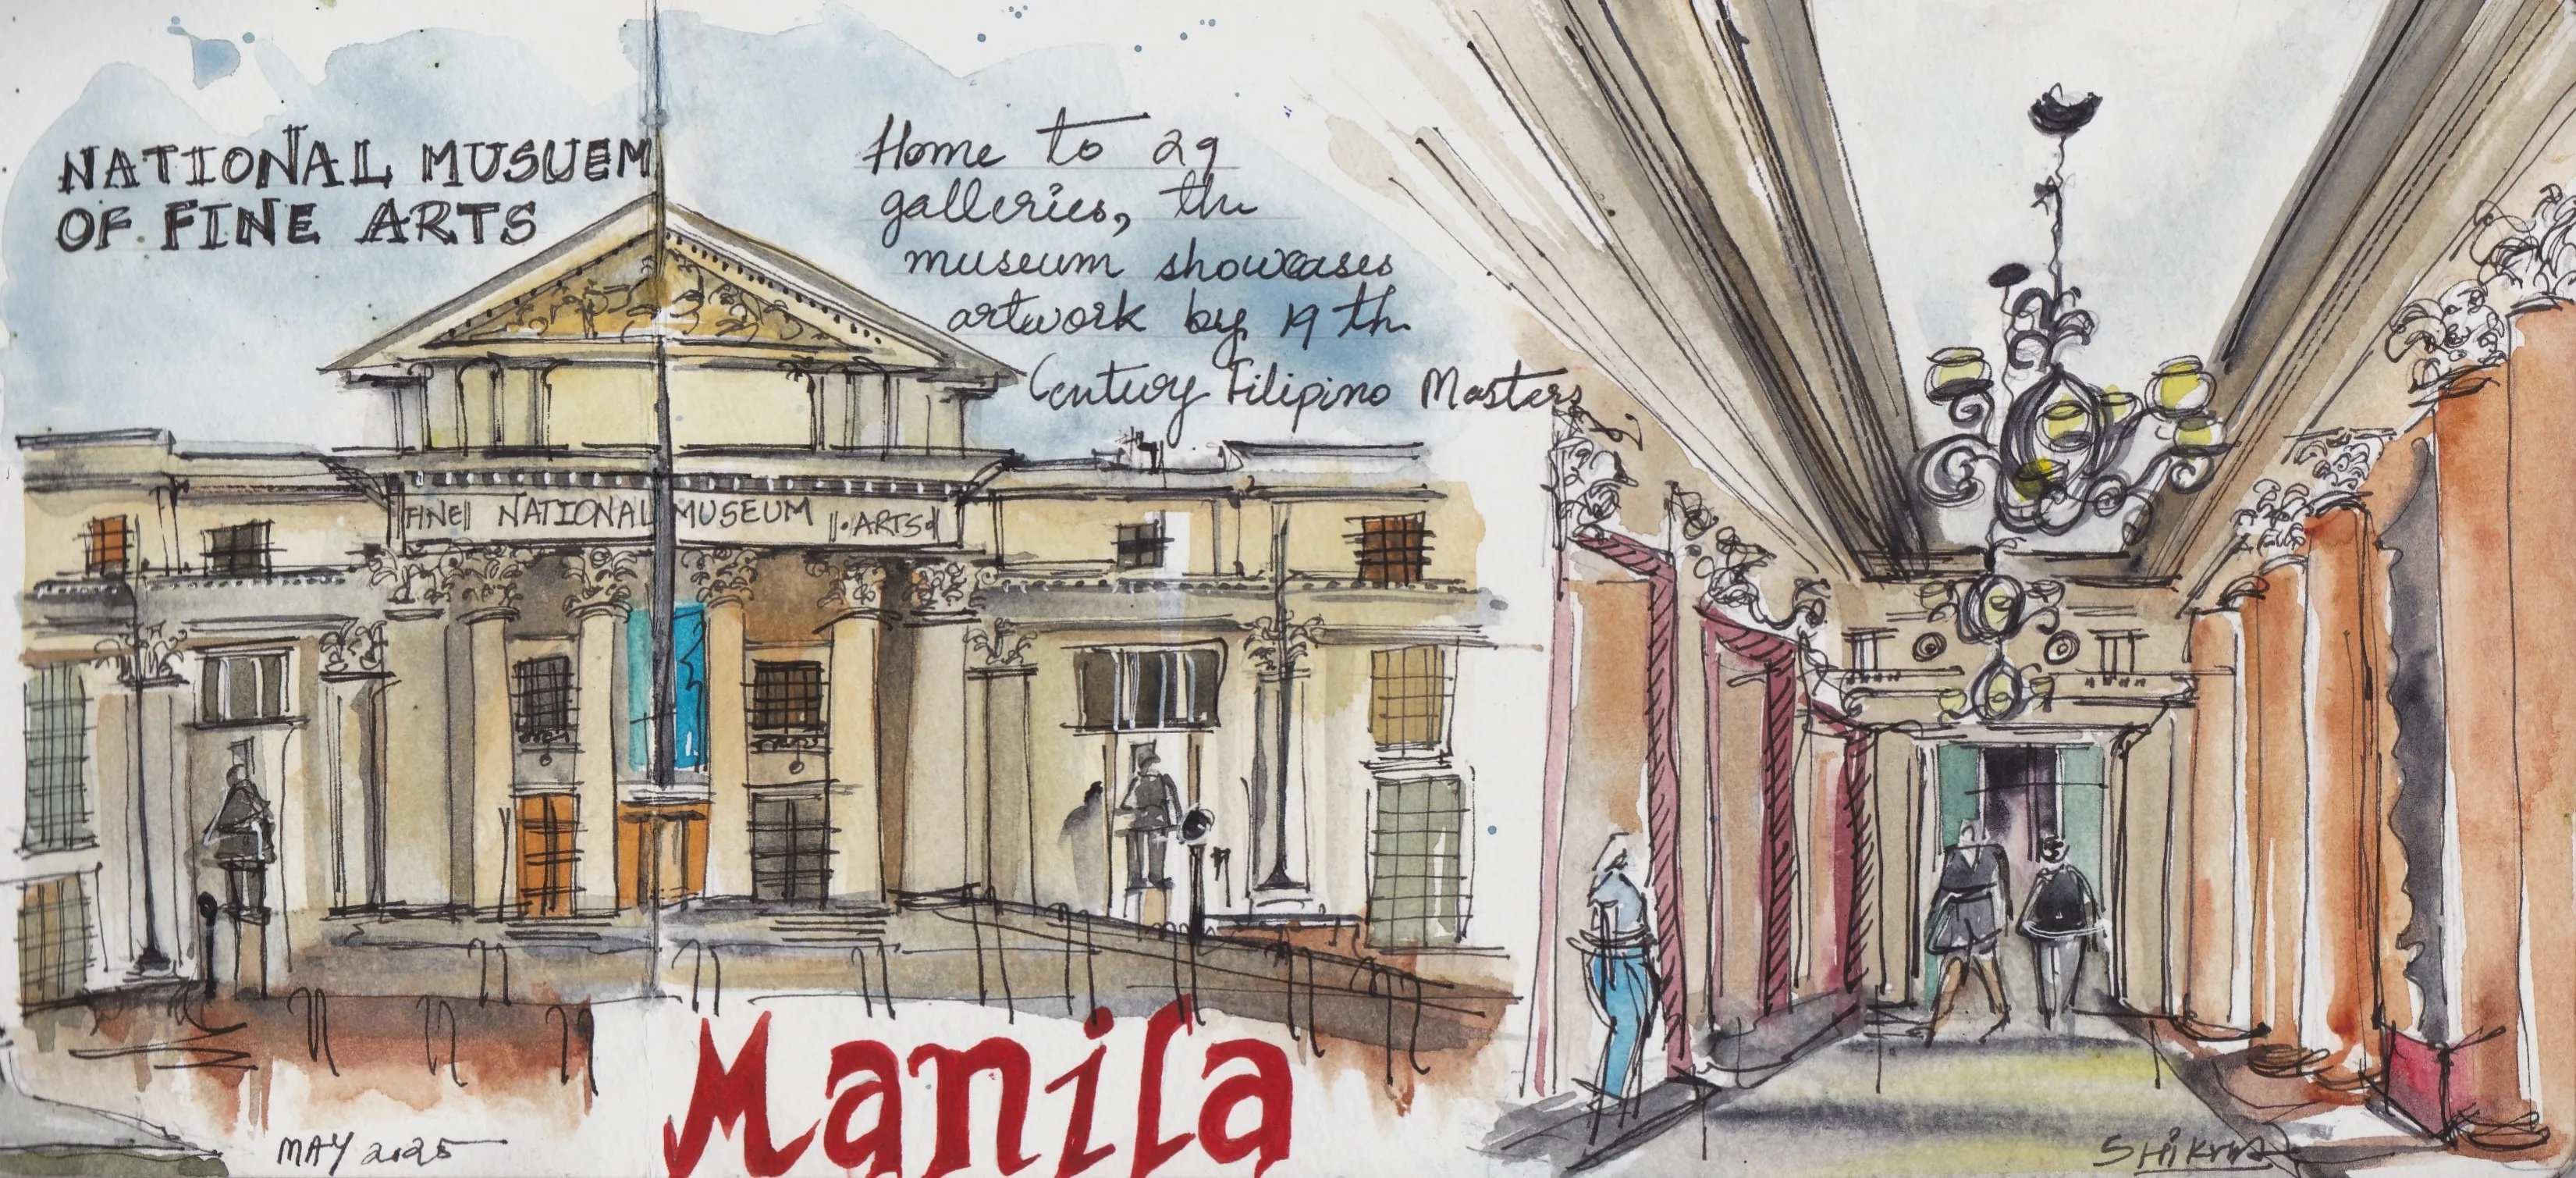 NATIONAL MUSUEM
OF FINE ARTS
Home to 29
galleries, the
museum showcases
artwork by 19th
Century Filipino Masters
FINE NATIONAL MUSEUM ARTS
Manila
MAY 2025